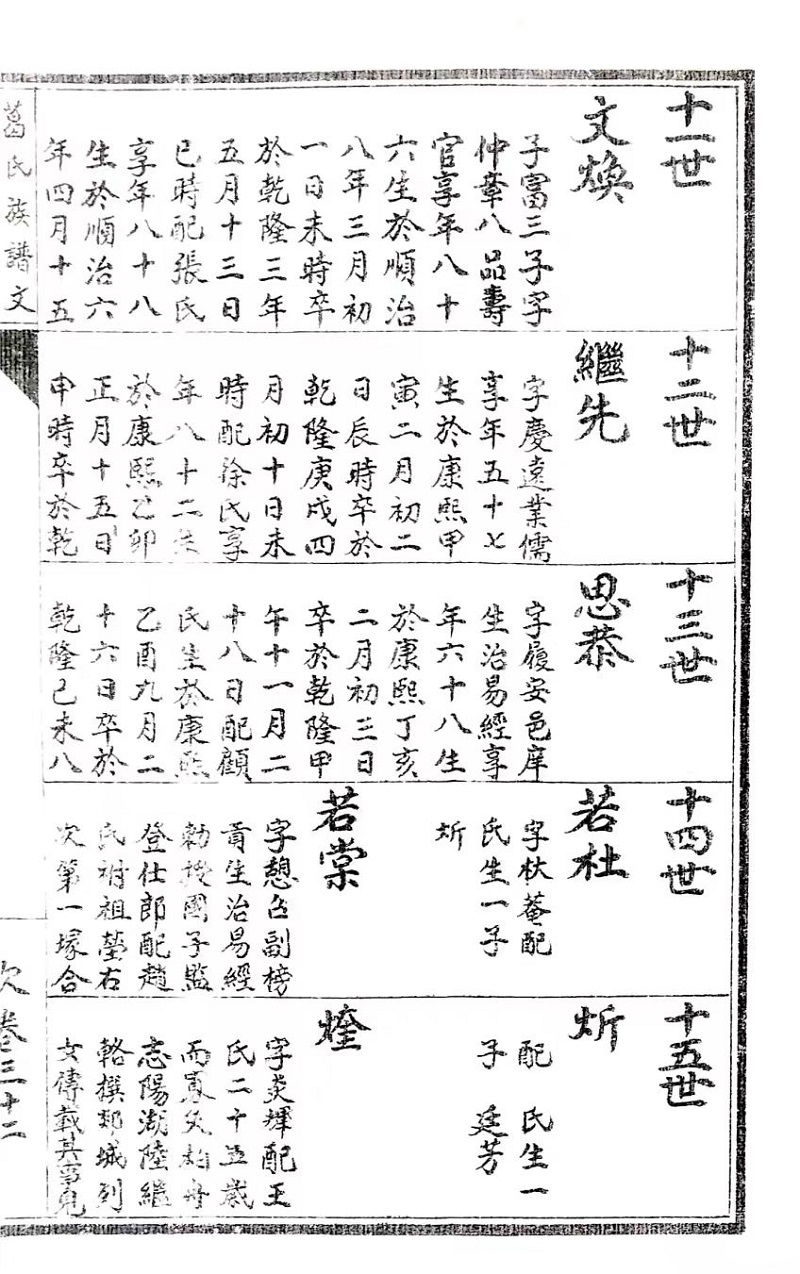 十一世
文煥
子富三子字
仲章八品壽
官享年八十
六生於順治
八年三月初
一日未時卒
於乾隆三年
五月十三日
巳時配張氏
享年八十八
生於順治六
年四月十五
十二世
繼先
字慶遠業儒
享年五十七
生於康熙甲
寅二月初二
日辰時卒於
乾隆庚戌四
月初十日未
時配徐氏享
年八十二生
於康熙乙卯
正月十五日
申時卒於乾
十三世
思恭
字履安邑庠
生治易經享
年六十八生
於康熙丁亥
二月初三日
卒於乾隆甲
午十一月二
十八日配顧
氏生於康熙
乙酉九月二
十六日卒於
乾隆己未八
十四世
若杜
字杕菴配
氏生一子
炘
若棠
字憩占副榜
貢生治易經
勅授國子監
登仕郎配趙
氏祔祖塋右
次第一塚合
十五世
炘
配 氏生一
子 廷芳
煃
字炎輝配王
氏二十五歲
而寡矢柏舟
志陽湖陸繼
輅撰郯城列
女傳載其事見
葛氏族譜文
次卷三十二